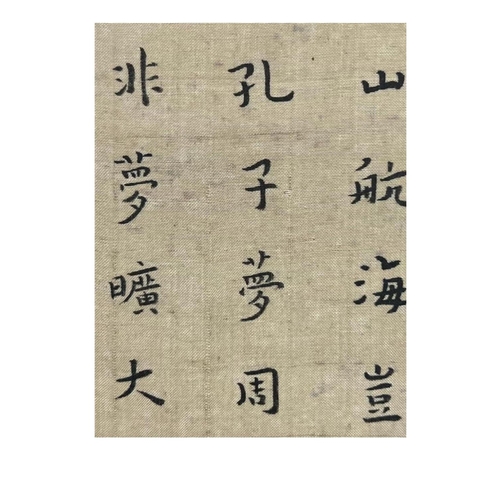 山航海豈
孔子夢周
非夢曠大